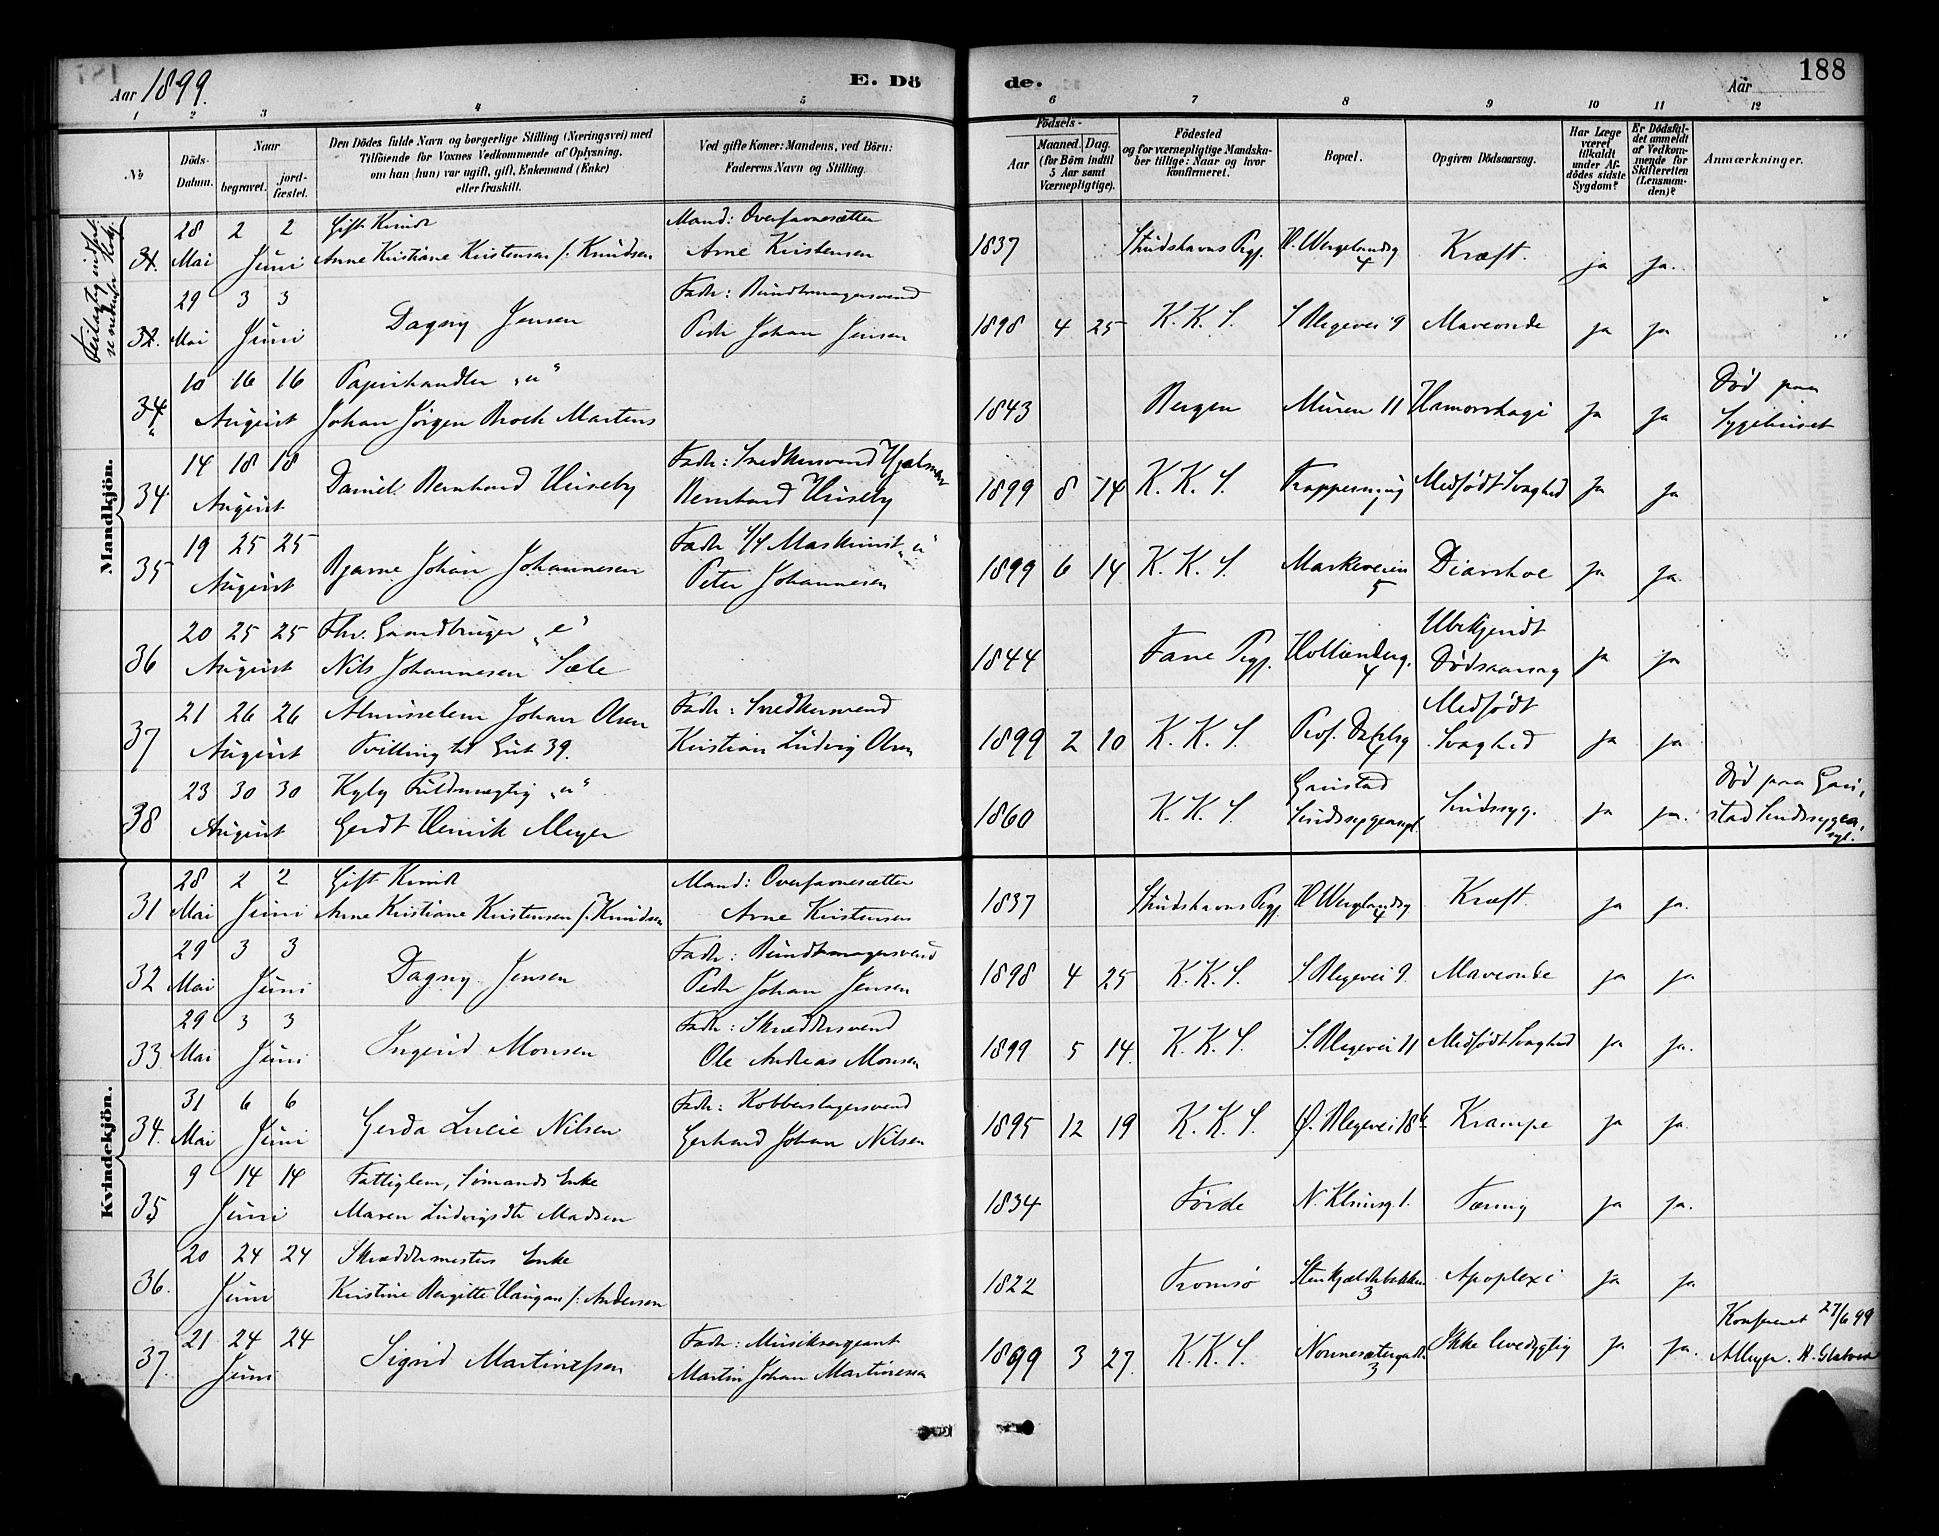 Aar 1899.
E. Döde.
Aar
188
1 2 3 4 5 6 7 8 9 10 11 12
No
Döds-Datum.
Naar
begravet.
jord-fæstet.
Den Dödes fulde Navn og borgerlige Stilling (Næringsvei) med
Tilföiende for Voxnes Vedkommende af Oplysning,
om han (hun) var ugift, gift, Enkemand (Enke)
eller fraskilt.
Ved gifte Koner: Mandens, ved Börn:
Faderens Navn og Stilling.
Födsels-
Aar
Maaned. Dag.
(for Börn indtil
5 Aar samt
Værnepligtige).
Födested
og for værnepligtige Mandska-
ber tillige: Naar og hvor
konfirmeret.
Bopæl.
Opgiven Dödsaarsag.
Har Læge
været
tilkaldt
under Af-
dödes sidste
Sygdom?
Er Dödsfal-
det anmeldt
af Vedkom-
mende for
Skifteretten
(Lensman-
den)?
Anmærkninger.
Mandkjön.
28 2 2 Gift Kvinde Mand: Overfarvesætter
31. Mai Juni Anne Kristiane Kristensen f. Knudsen Arne Kristensen 1837 Prgj. H. Wergelandsg 4 Kræft. ja ja.
29 3 3 Fader: Bundtmagersvend
32. Mai Juni Dagny Jensen Peder Johan Jensen 1898 4 25 K. K. S. S. Blegevei 9 Maveonde ja ja
10 16 16 Papirhandler "u" Död paa
34 August Johan Jörgen Brock Martens 1843 Bergen Muren 11 ja ja Sygehuset
14 18 18 Fader: Snedkersvend Hjalmar
34 August Daniel Bernhard Huseby Bernhard Huseby 1899 8 14 K. K. S. Medfødt Svaghed ja ja
19 25 25 Fader Maskinist "u"
35 August Bjarne Johan Johannesen Peter Johannesen 1899 6 14 K. K. S. Markeveien 5 Diarrhoe ja ja.
20 25 25 Fhv. Gaardbruger "e" Ubekjendt
36 August Nils Johannesen Sæle 1844 Fane Prgj. Hollenderg. 4 Dødsaarsag ja ja
21 26 26 Johan Olsen Fader: Snedkersvend Medfødt
37 August Tvilling til 39. Kristian Ludvig Olsen 1899 2 10 K. K. S. Prof. Dahlsg 4 Svaghed ja ja
23 30 30 Fuldmægtig "u" Gaustad Død paa Gau-
38 August Gerdt Henrik Meyer 1860 K. K. S. Sindssygeasyl. Sindssyg. ja ja. stad Sindssygea-
syl.
Kvindekjön.
28 2 2 Gift Kvinde Mand: Overfarvesætter
31 Mai Juni Anne Kristiane Kristensen f. Knudsen Arne Kristensen 1837 Prgj. H. Wergelandsg 4 Kræft. ja ja.
29 3 3 Fader: Bundtmagersvend
32 Mai Juni Dagny Jensen Peder Johan Jensen 1898 4 25 K. K. S. S. Blegevei 9. Maveonde ja ja
29 3 3 Fader: Skræddersvend
33 Mai Juni Ingerid Monsen Ole Andreas Monsen 1899 5 14. K. K. S. S. Blegevei 11 Medfødt Svaghed ja ja.
31 6 6 Fader: Kobberslagersvend
34. Mai Juni Gerda Lucie Nilsen Gerhard Johan Nilsen 1895 12 19 K. K. S. Ø. Blegevei 18b Krampe ja ja.
9 14 14 Fattiglem, Sømands Enke
35 Juni Maren Ludvigsdtr Madsen 1834 Førde Tæring ja ja.
20 24 24 Skræddermesters Enke
36. Juni Kristine Bergitte Haugan f. Andersen 1822 Tromsø Stenkjælderbakken 3 Apoplexi ja ja
21 24 24 Fader: Musiksergeant Konfereret 27/6 99
37. Juni Sigrid Martinussen Martin Johan Martinussen 1899 3 27. K. K. S. Nonneseterga. 3 Ikke levedygtig ja ja. AMeyer.